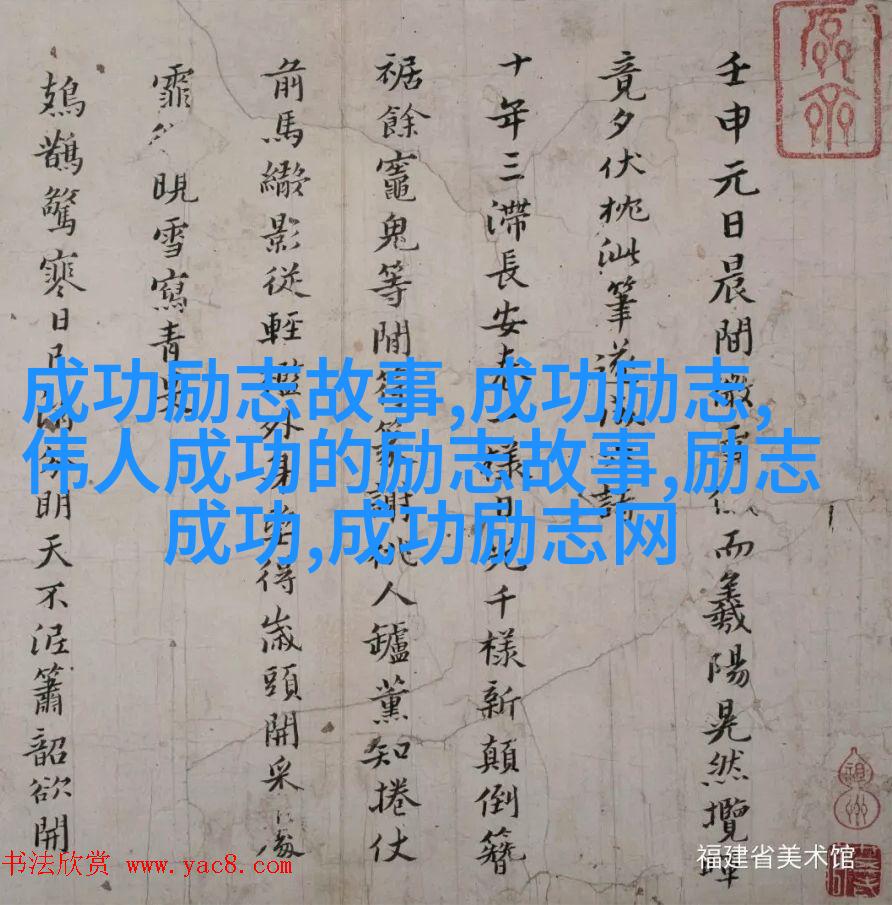 壬申元日晨間微雪而羲陽晃然攬暉
竟夕伏枕泚筆遂詩
十年三滯長安春樣日千樣新顛倒簪
裾餘竈鬼等閒謝桃人鑪薰知捲仗
前馬繖影從輕外身坐得歲頭開采
霏晛雪寫青旻
鳷鵲驚寒日明天不溼簫韶欲開
成功励志故事,成功励志,
伟人成功的励志故事,励志
成功,成功励志网
书法欣赏 www.yac8.com
福建省美术馆